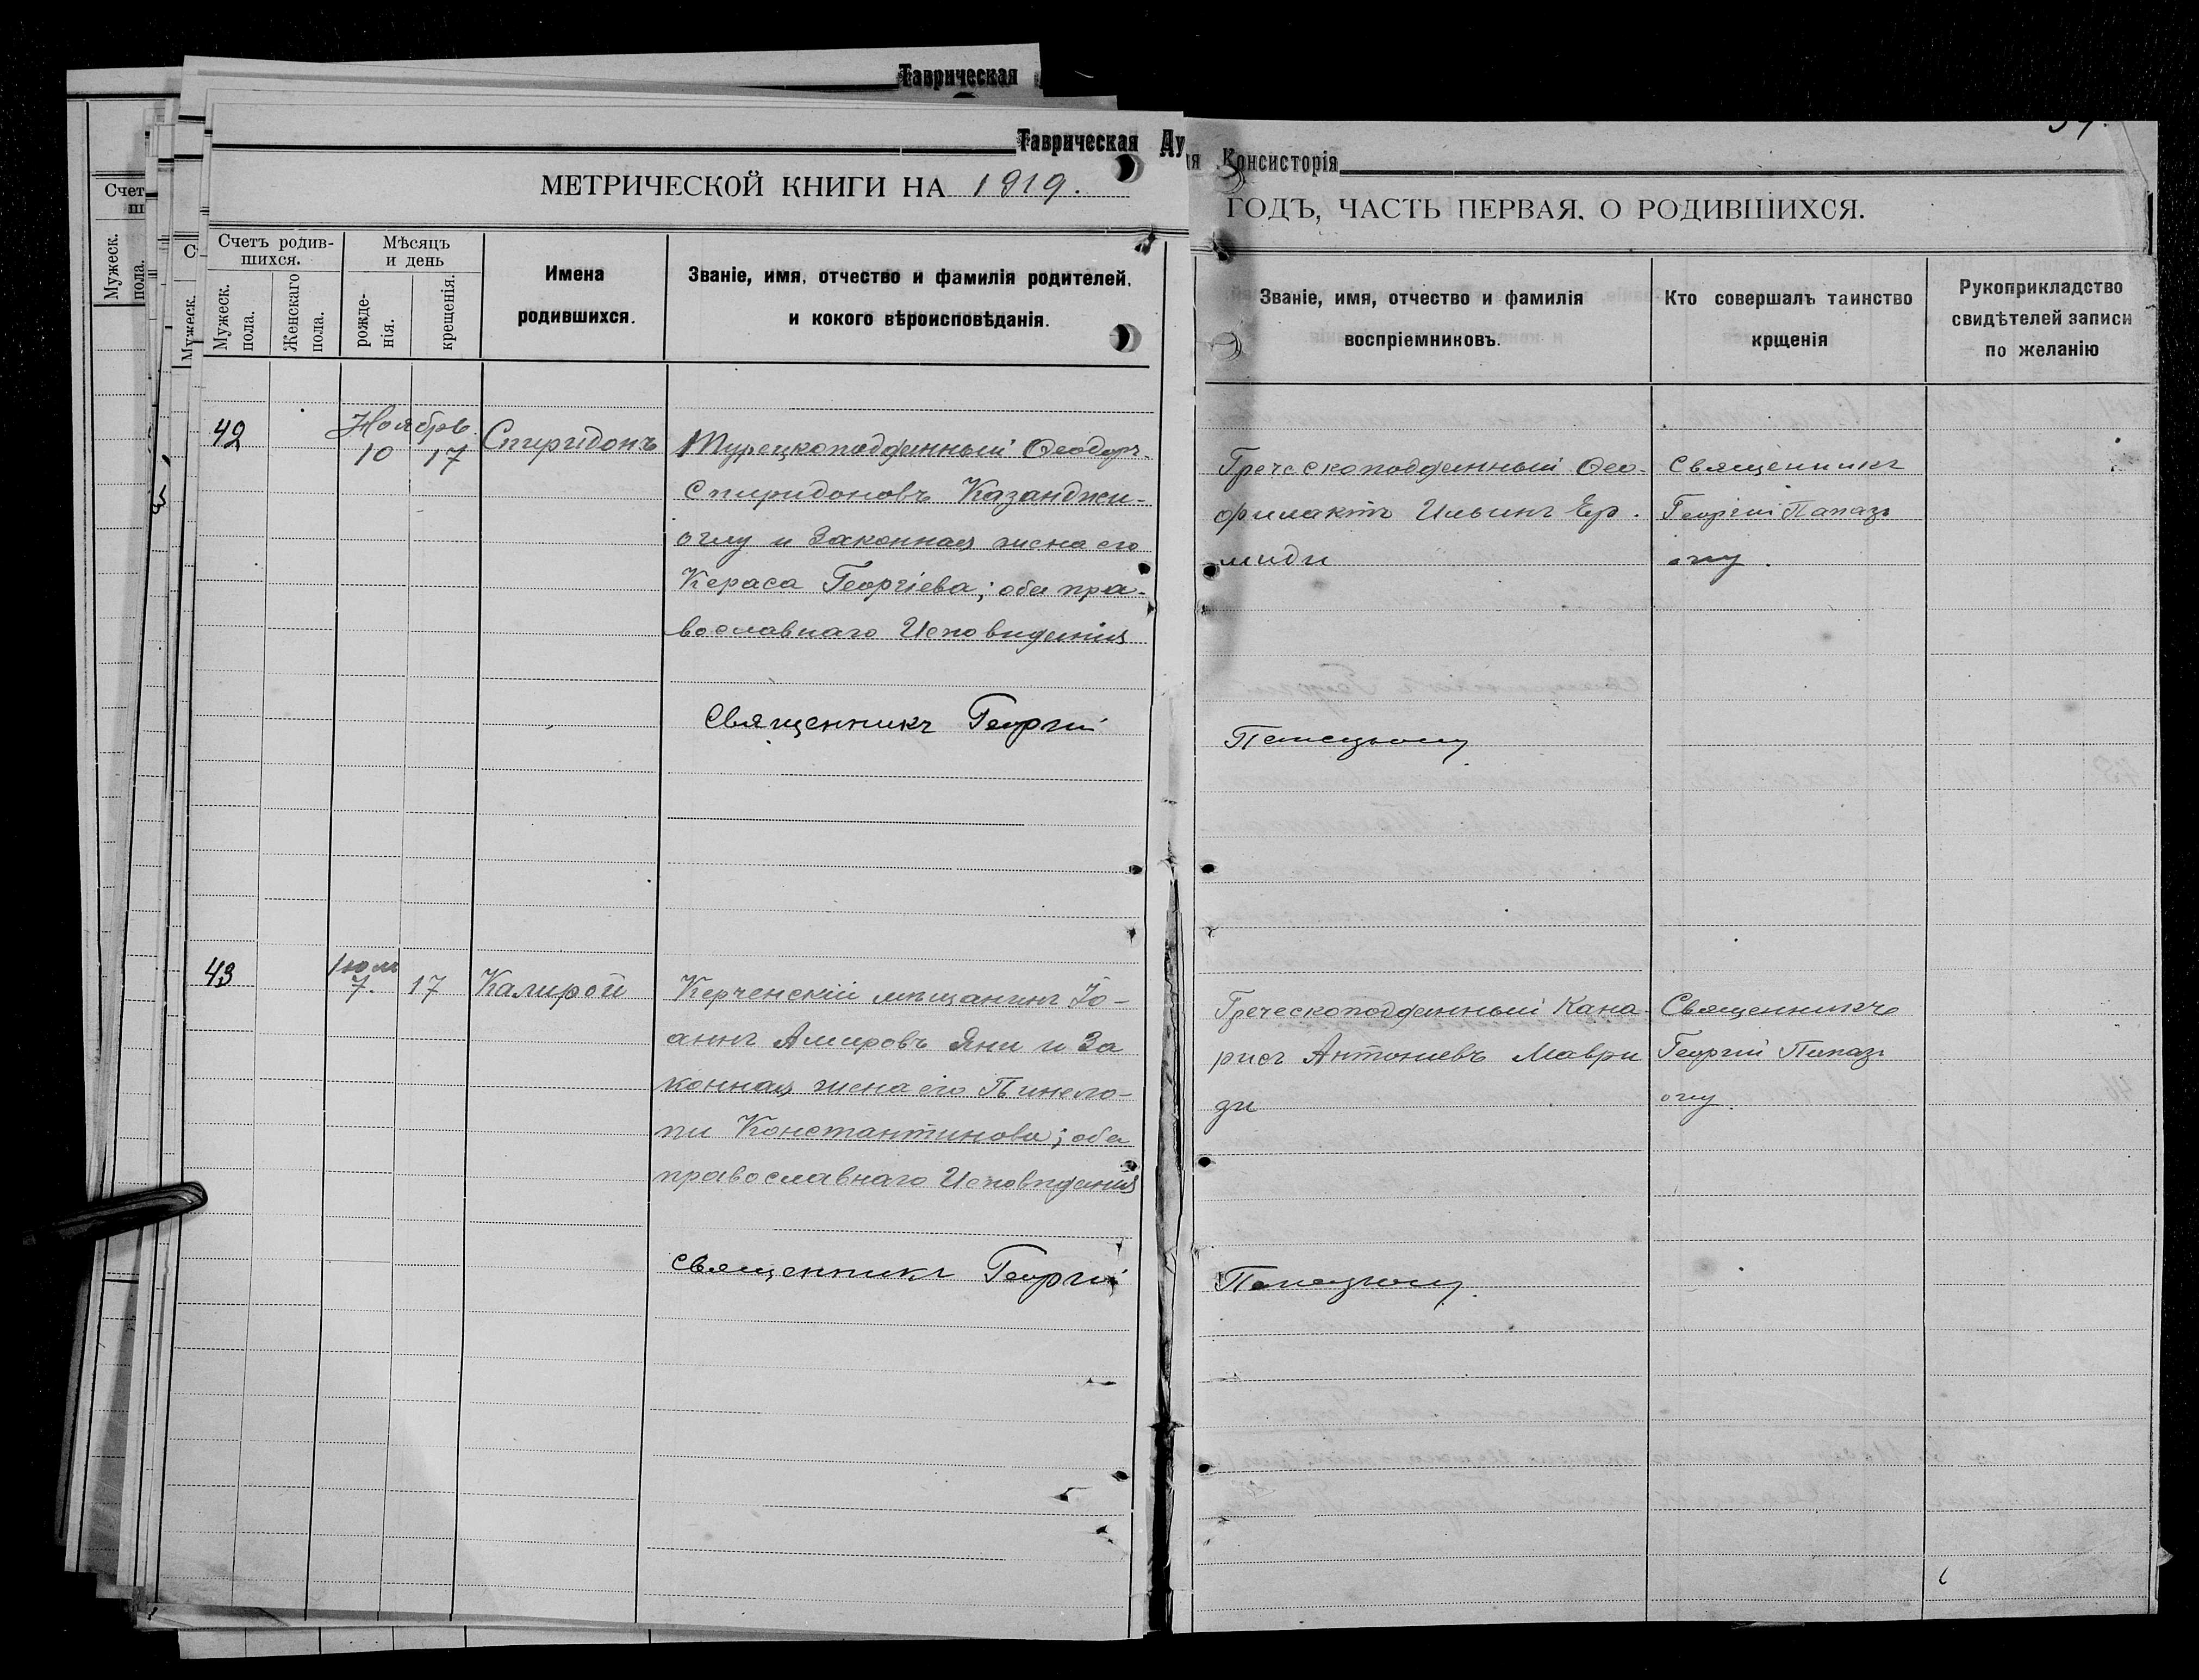 Таврическая
Таврическая Ду
ія Консисторія
МЕТРИЧЕСКОЙ КНИГИ НА 1919.
ГОДЪ, ЧАСТЬ ПЕРВАЯ, О РОДИВШИХСЯ.
Счет
Мужеск.
пола.
Счетъ родив-
шихся.
Мужеск.
пола.
Женскаго
пола.
Мѣсяцъ
и день
рожде-
нія.
крещенія.
Имена
родившихся.
Званіе, имя, отчество и фамилія родителей,
и кокого вѣроисповѣданія.
Званіе, имя, отчество и фамилія
воспріемниковъ.
Кто совершалъ таинство
крщенія
Рукоприкладство
свидѣтелей записи
по желанію
42
Ноябрь
10 17
Спиридонъ
Турецкоподданный Ѳеодоръ
Спиридоновъ Казанджи-
оглу и законная жена его
Кераса Георгіева; оба пра-
вославнаго Исповиданія
Греческоподданный Ѳео-
филактъ Ильинъ Ер
миди
Священникъ
Георгій Папазъ
оглу.
Священникъ Георгій
Папазъоглу.
43
Іюль
7. 17
Калирой
Керченскій мѣщанинъ Іо-
аннъ Амировъ Яни и За
конная жена его Пинело-
пи Константинова; оба
православнаго Исповиданія
Греческоподданный Кана-
рисъ Антониевъ Маври
ди
Священникъ
Георгій Папазъ
оглу.
Священникъ Георгій
Папазъоглу.